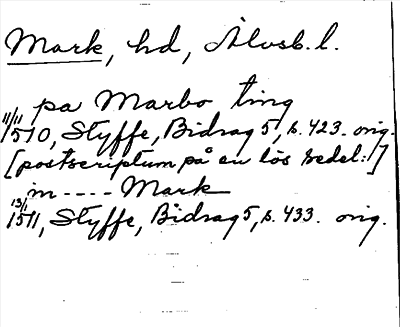 Mark, hd, Älvsb. l.
pa Marbo ting
11/11 1510, Styffe, Bidrag 5, s. 423. orig.
[postscriptum på en lös sedel:]
m ---- Mark
13/1 1511, Styffe, Bidrag 5, s. 433. orig.